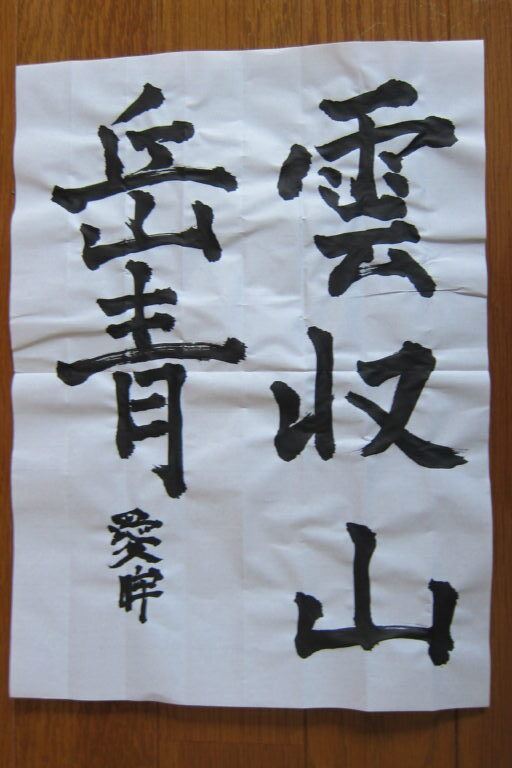 雲収山
岳青
愛